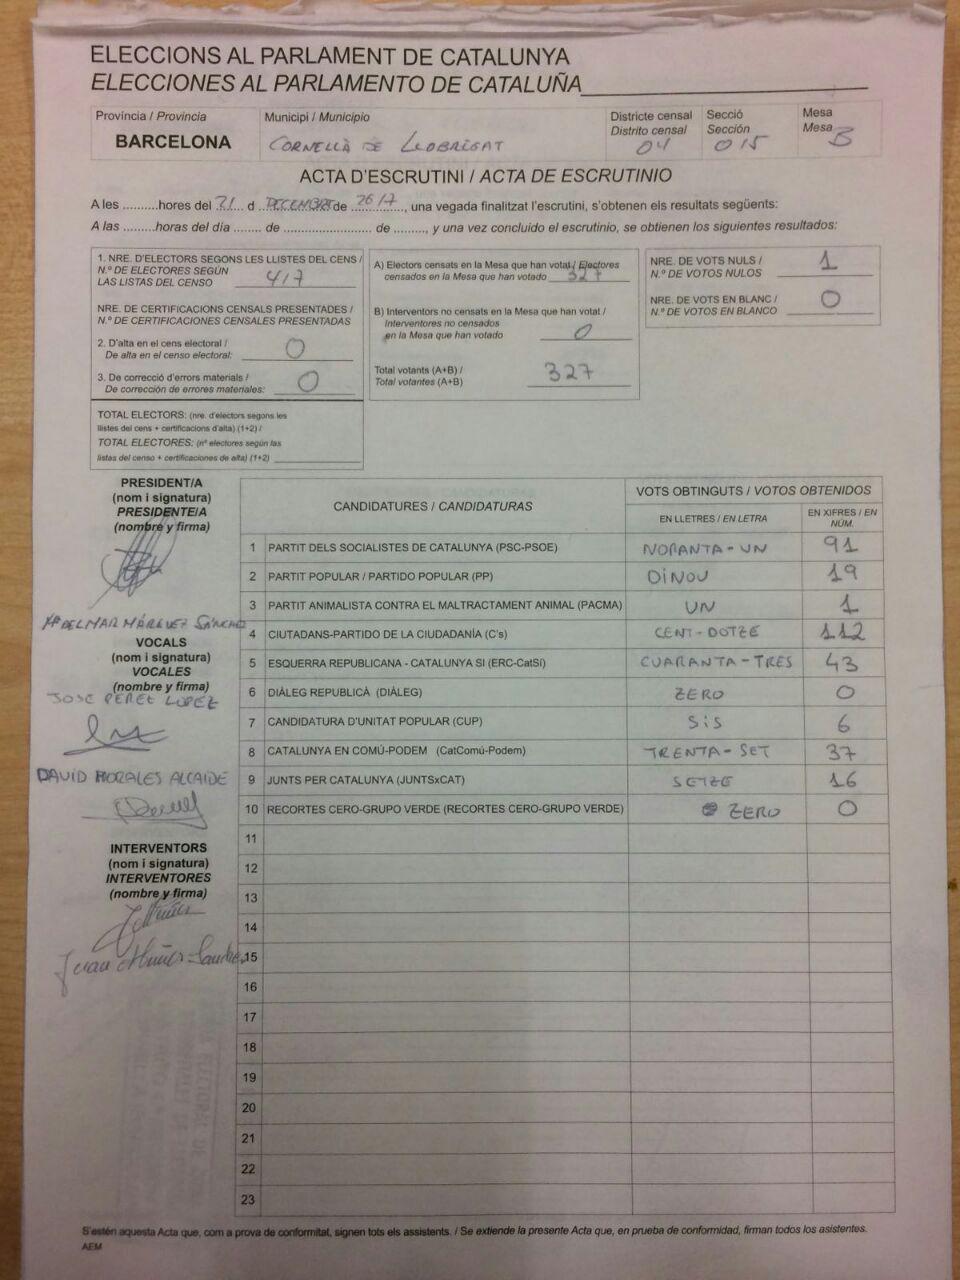 ELECCIONS AL PARLAMENT DE CATALUNYA
ELECCIONES AL PARLAMENTO DE CATALUÑA
Província / Provincia
BARCELONA
Municipi / Municipio
CORNELLÀ DE LLOBREGAT
Districte censal
Distrito censal
04
Secció
Sección
015
Mesa
Mesa
B
ACTA D'ESCRUTINI / ACTA DE ESCRUTINIO
A les ..........hores del 21 d DECEMBRE de 2017, una vegada finalitzat l'escrutini, s'obtenen els resultats següents:
A las .........horas del día ........ de ........................ de ........., y una vez concluido el escrutinio, se obtienen los siguientes resultados:
1. NRE. D'ELECTORS SEGONS LES LLISTES DEL CENS /
N.º DE ELECTORES SEGÚN
LAS LISTAS DEL CENSO 417
NRE. DE CERTIFICACIONS CENSALS PRESENTADES /
N.º DE CERTIFICACIONES CENSALES PRESENTADAS
2. D'alta en el cens electoral /
De alta en el censo electoral: 0
3. De correcció d'errors materials /
De corrección de errores materiales: 0
TOTAL ELECTORS: (nre. d'electors segons les
llistes del cens + certificacions d'alta) (1+2) /
TOTAL ELECTORES: (nº electores según las
listas del censo + certificaciones de alta) (1+2)
A) Electors censats en la Mesa que han votat / Electores
censados en la Mesa que han votado 327
B) Interventors no censats en la Mesa que han votat /
Interventores no censados
en la Mesa que han votado 0
Total votants (A+B) /
Total votantes (A+B) 327
NRE. DE VOTS NULS /
N.º DE VOTOS NULOS 1
NRE. DE VOTS EN BLANC /
N.º DE VOTOS EN BLANCO 0
PRESIDENT/A
(nom i signatura)
PRESIDENTE/A
(nombre y firma)
Mª DEL MAR MÁRQUEZ SÁNCHEZ
VOCALS
(nom i signatura)
VOCALES
(nombre y firma)
JOSE PEREZ LOPEZ
DAVID MORALES ALCAIDE
INTERVENTORS
(nom i signatura)
INTERVENTORES
(nombre y firma)
Juan
CANDIDATURES / CANDIDATURAS
VOTS OBTINGUTS / VOTOS OBTENIDOS
EN LLETRES / EN LETRA
EN XIFRES / EN NÚM.
1 PARTIT DELS SOCIALISTES DE CATALUNYA (PSC-PSOE) NORANTA-UN 91
2 PARTIT POPULAR / PARTIDO POPULAR (PP) DINOU 19
3 PARTIT ANIMALISTA CONTRA EL MALTRACTAMENT ANIMAL (PACMA) UN 1
4 CIUTADANS-PARTIDO DE LA CIUDADANÍA (C's) CENT-DOTZE 112
5 ESQUERRA REPUBLICANA - CATALUNYA SI (ERC-CatSí) CUARANTA-TRES 43
6 DIÀLEG REPUBLICÀ (DIÀLEG) ZERO 0
7 CANDIDATURA D'UNITAT POPULAR (CUP) SIS 6
8 CATALUNYA EN COMÚ-PODEM (CatComú-Podem) TRENTA-SET 37
9 JUNTS PER CATALUNYA (JUNTSxCAT) SETZE 16
10 RECORTES CERO-GRUPO VERDE (RECORTES CERO-GRUPO VERDE) ZERO 0
11
12
13
14
15
16
17
18
19
20
21
22
23
S'estén aquesta Acta que, com a prova de conformitat, signen tots els assistents. / Se extiende la presente Acta que, en prueba de conformidad, firman todos los asistentes.
AEM